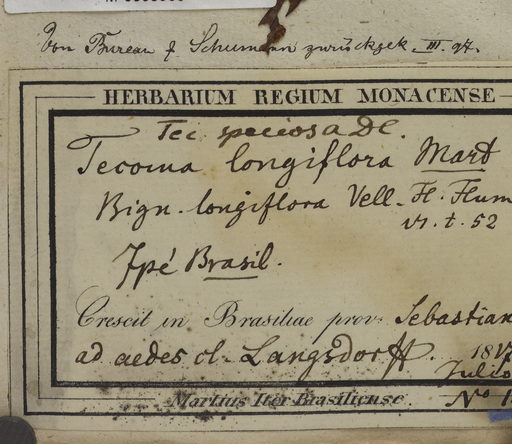 Von Bureau & Schumann zurückgek. III. 97.
HERBARIUM REGIUM MONACENSE
Tec. speciosa DC.
Tecoma longiflora Mart
Bign. longiflora Vell. Fl. Flum
VI. t. 52
Ipé Brasil.
Crescit in Brasiliae prov. Sebastian
ad aedes cl. Langsdorff. 1817
Julio
Martius Iter Brasiliense. No 1